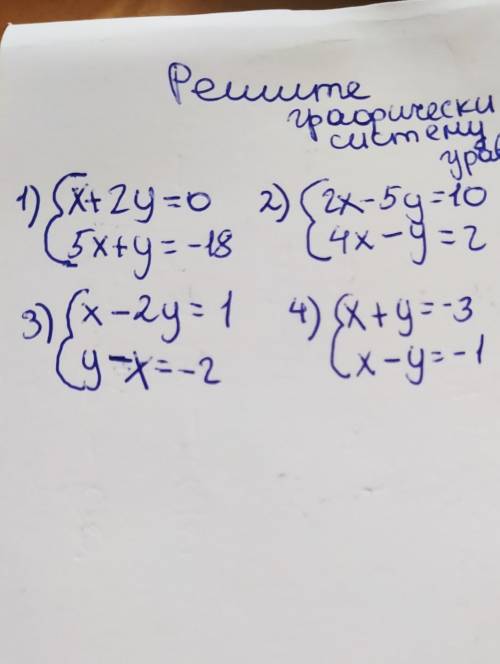 Решите
графически
систему
1) { x + 2y = 0
5x + y = -18
2) { 2x - 5y = 10
4x - y = 2
3) { x - 2y = 1
y - x = -2
4) { x + y = -3
x - y = -1